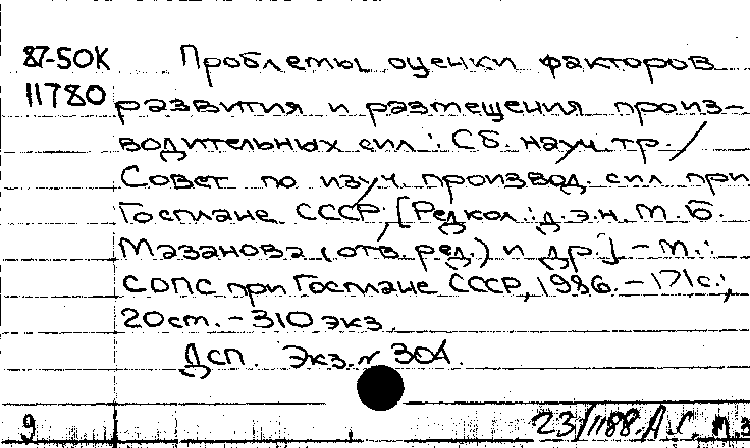 87-50К Проблемы оценки факторов
11780 развития и размещения произ-
водительных сил : Сб. науч. тр. /
Совет по изуч. производ. сил при
Госплане СССР; [Редкол.: д.э.н. М.Б.
Мазанова (отв. ред.) и др.] - М.:
СОПС при Госплане СССР, 1986. - 171с.;
20см. - 310 экз.
Дсп. Экз. № 304.
9 23/1188.